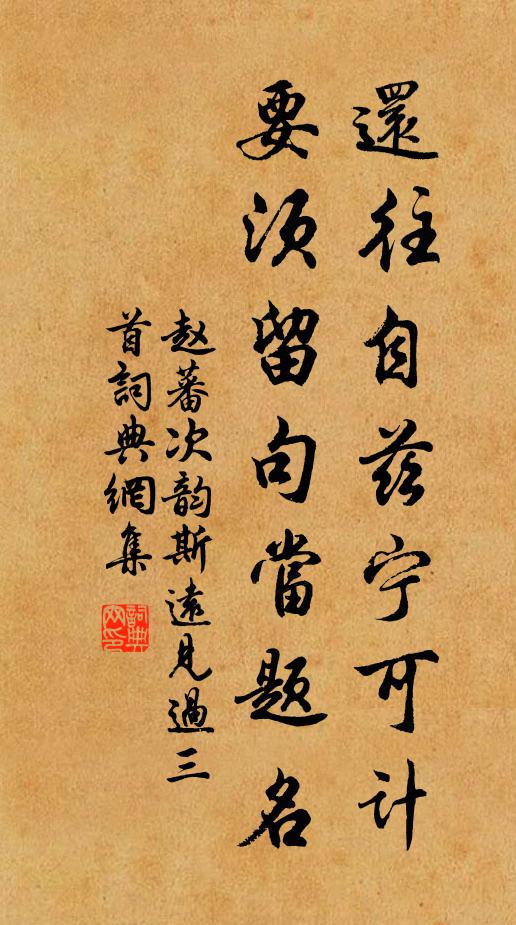 還往自兹宁可计
要须留句當题名
赵蕃次韵斯遠見過三
首詞典網集
詞典網印